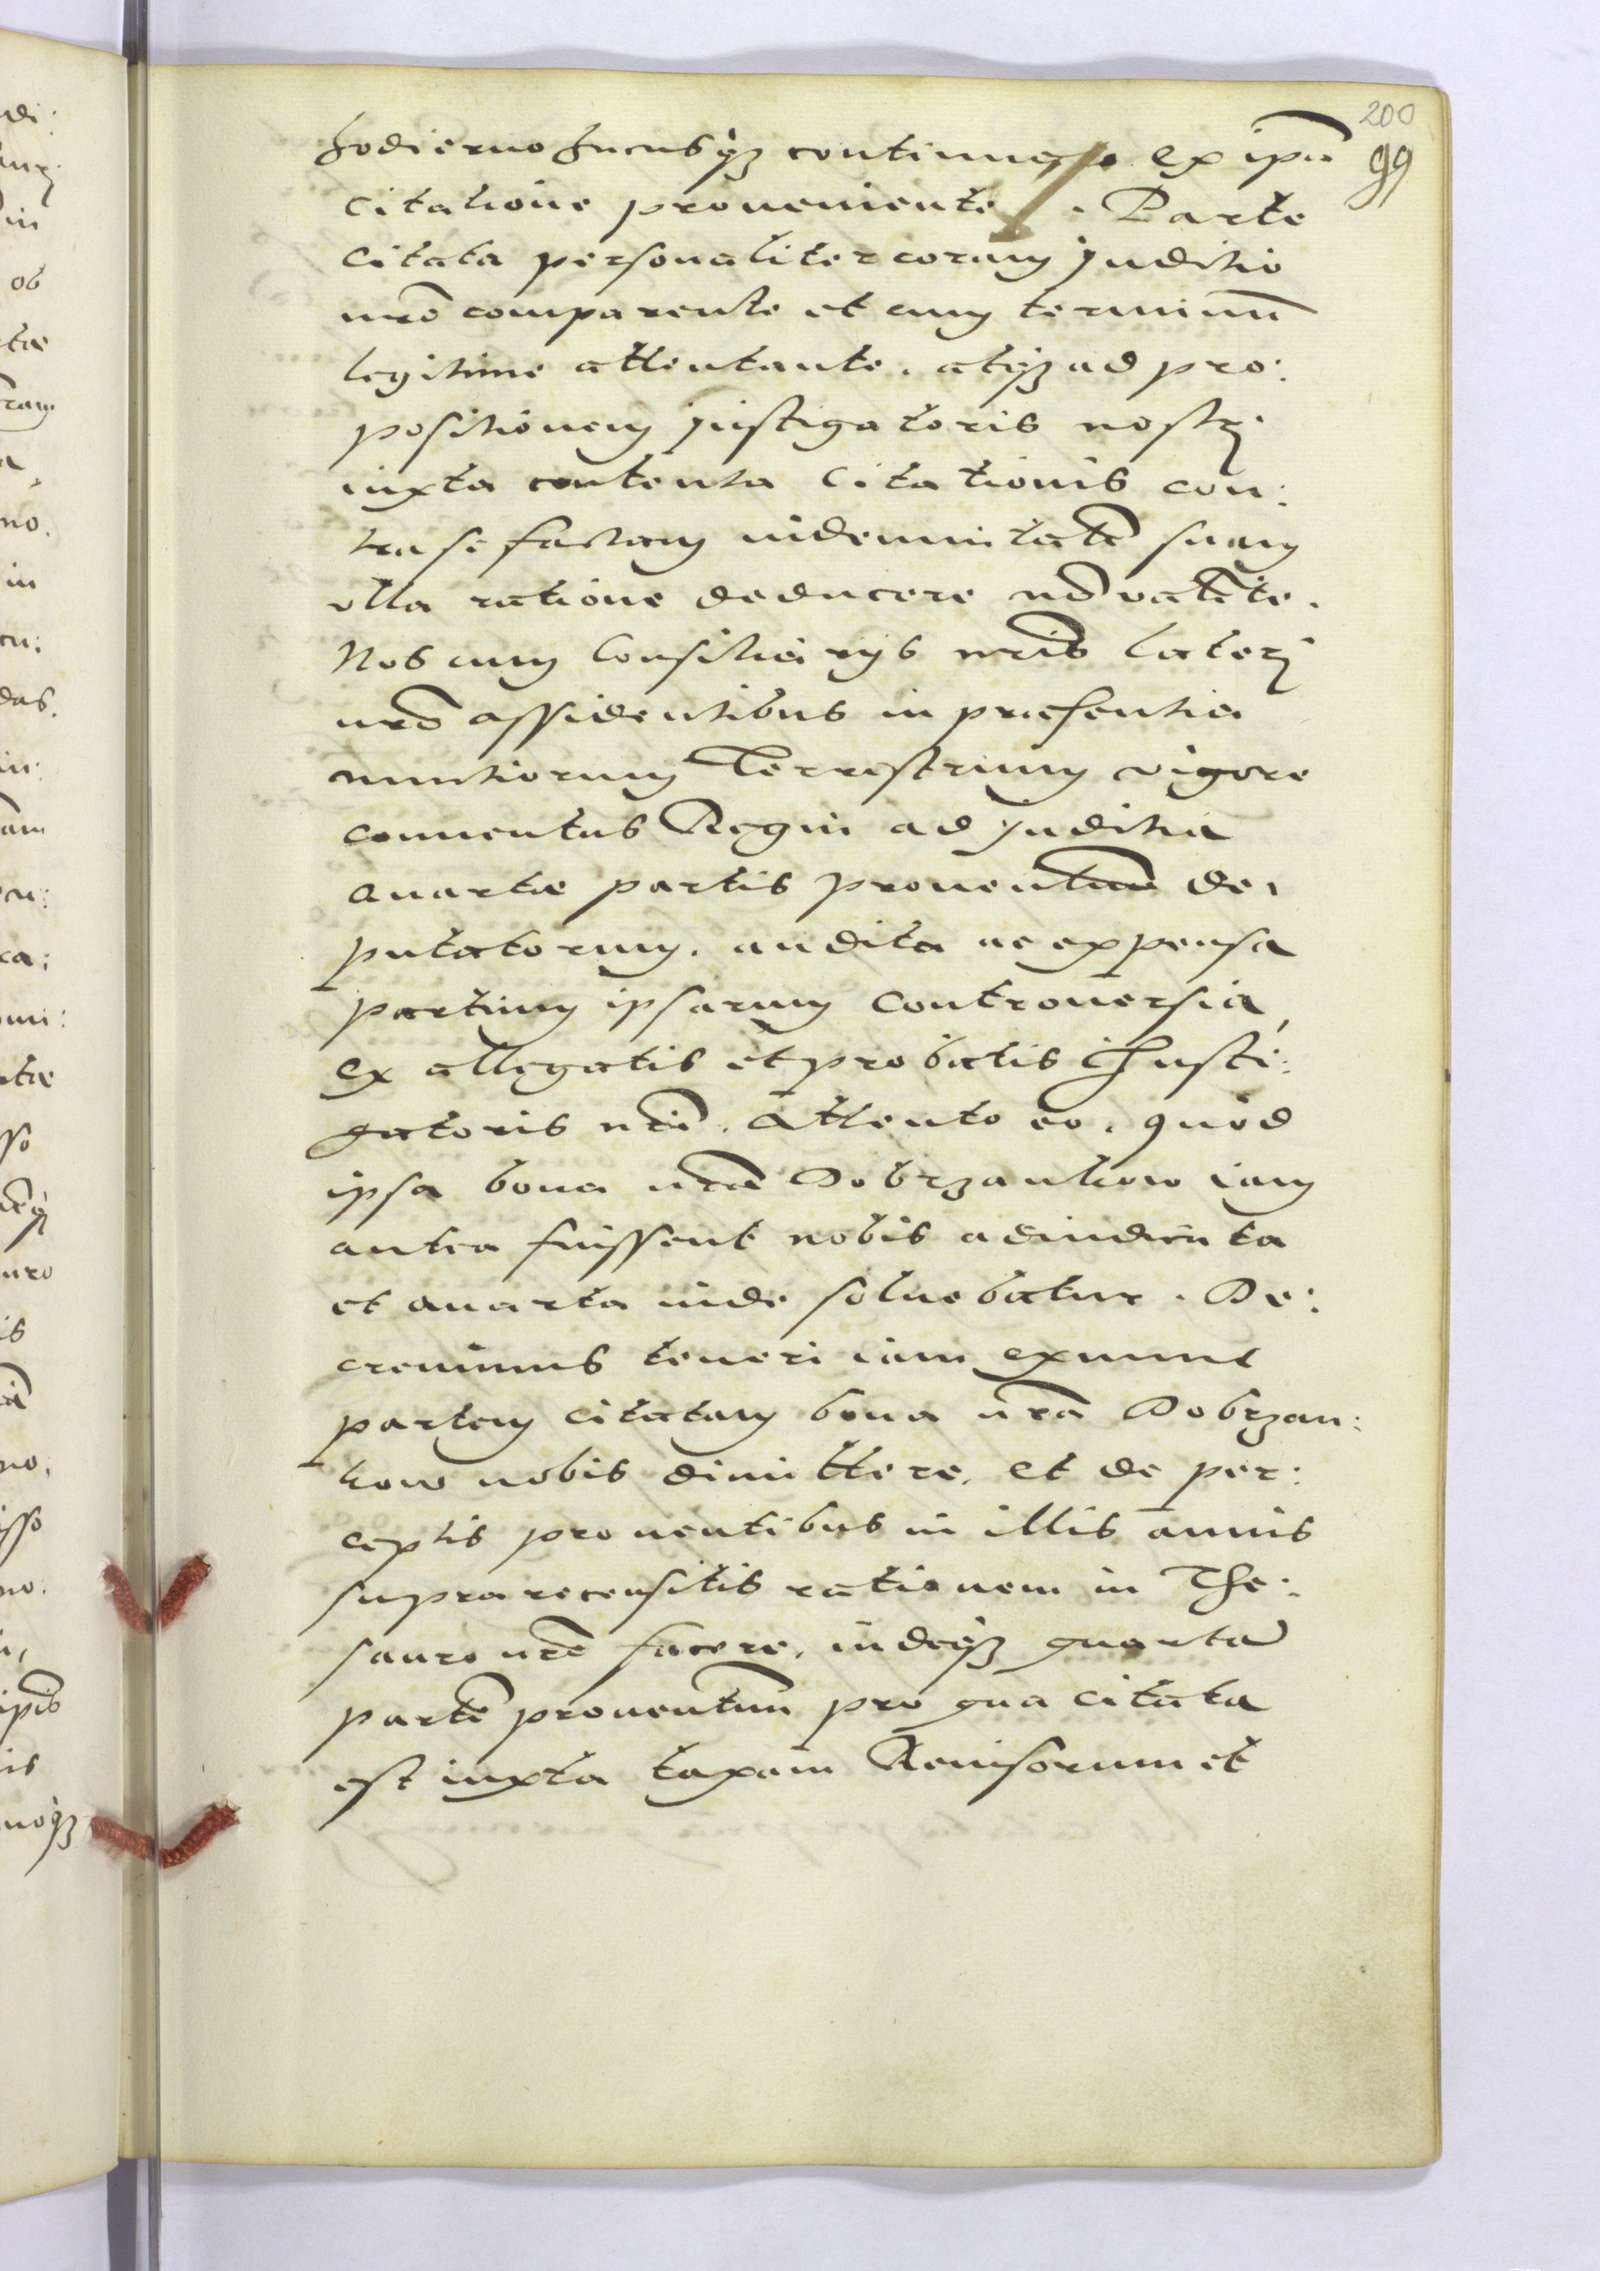 200
99
hodierno hucusq3 continuasse. Ex ipā
citatione proueniente. Parte
citata personaliter coram Juditio
nr̄o comparente et cum terminū
legitime attentante. atq3 ad pro:
positionem Jnstigatoris nostrj
iuxta contenta Citationis con:
tra se factam indemnitatē suam
vlla ratione deducere nō valēte.
Nos cum Consiliarijs nr̄is laterj
nr̄o assidentibus in praesentia
nuntiorum Terrestrium vigore
conuentus Regni ad Juditia
Quartae partis prouentuum de:
putatorum. audita ac expensa
partium ipsarum controuersia,
Ex allegatis et probatis Insti:
gatoris nr̄i. Attento eo. quòd
ipsa bona nr̄a Dobrzankow iam
antea fuissent nobis adiudicata
et Quarta inde soluebatur. De:
creuimus teneri iam exnunc
partem citatam bona nr̄a Dobrzan:
kow nobis dimittere. et de per:
ceptis prouentibus in illis annis
supra recensitis rationem in The:
sauro nr̄o facere. indeq3 quartā
partē prouentuū pro qua citata
est iuxta taxam Reuisorum et